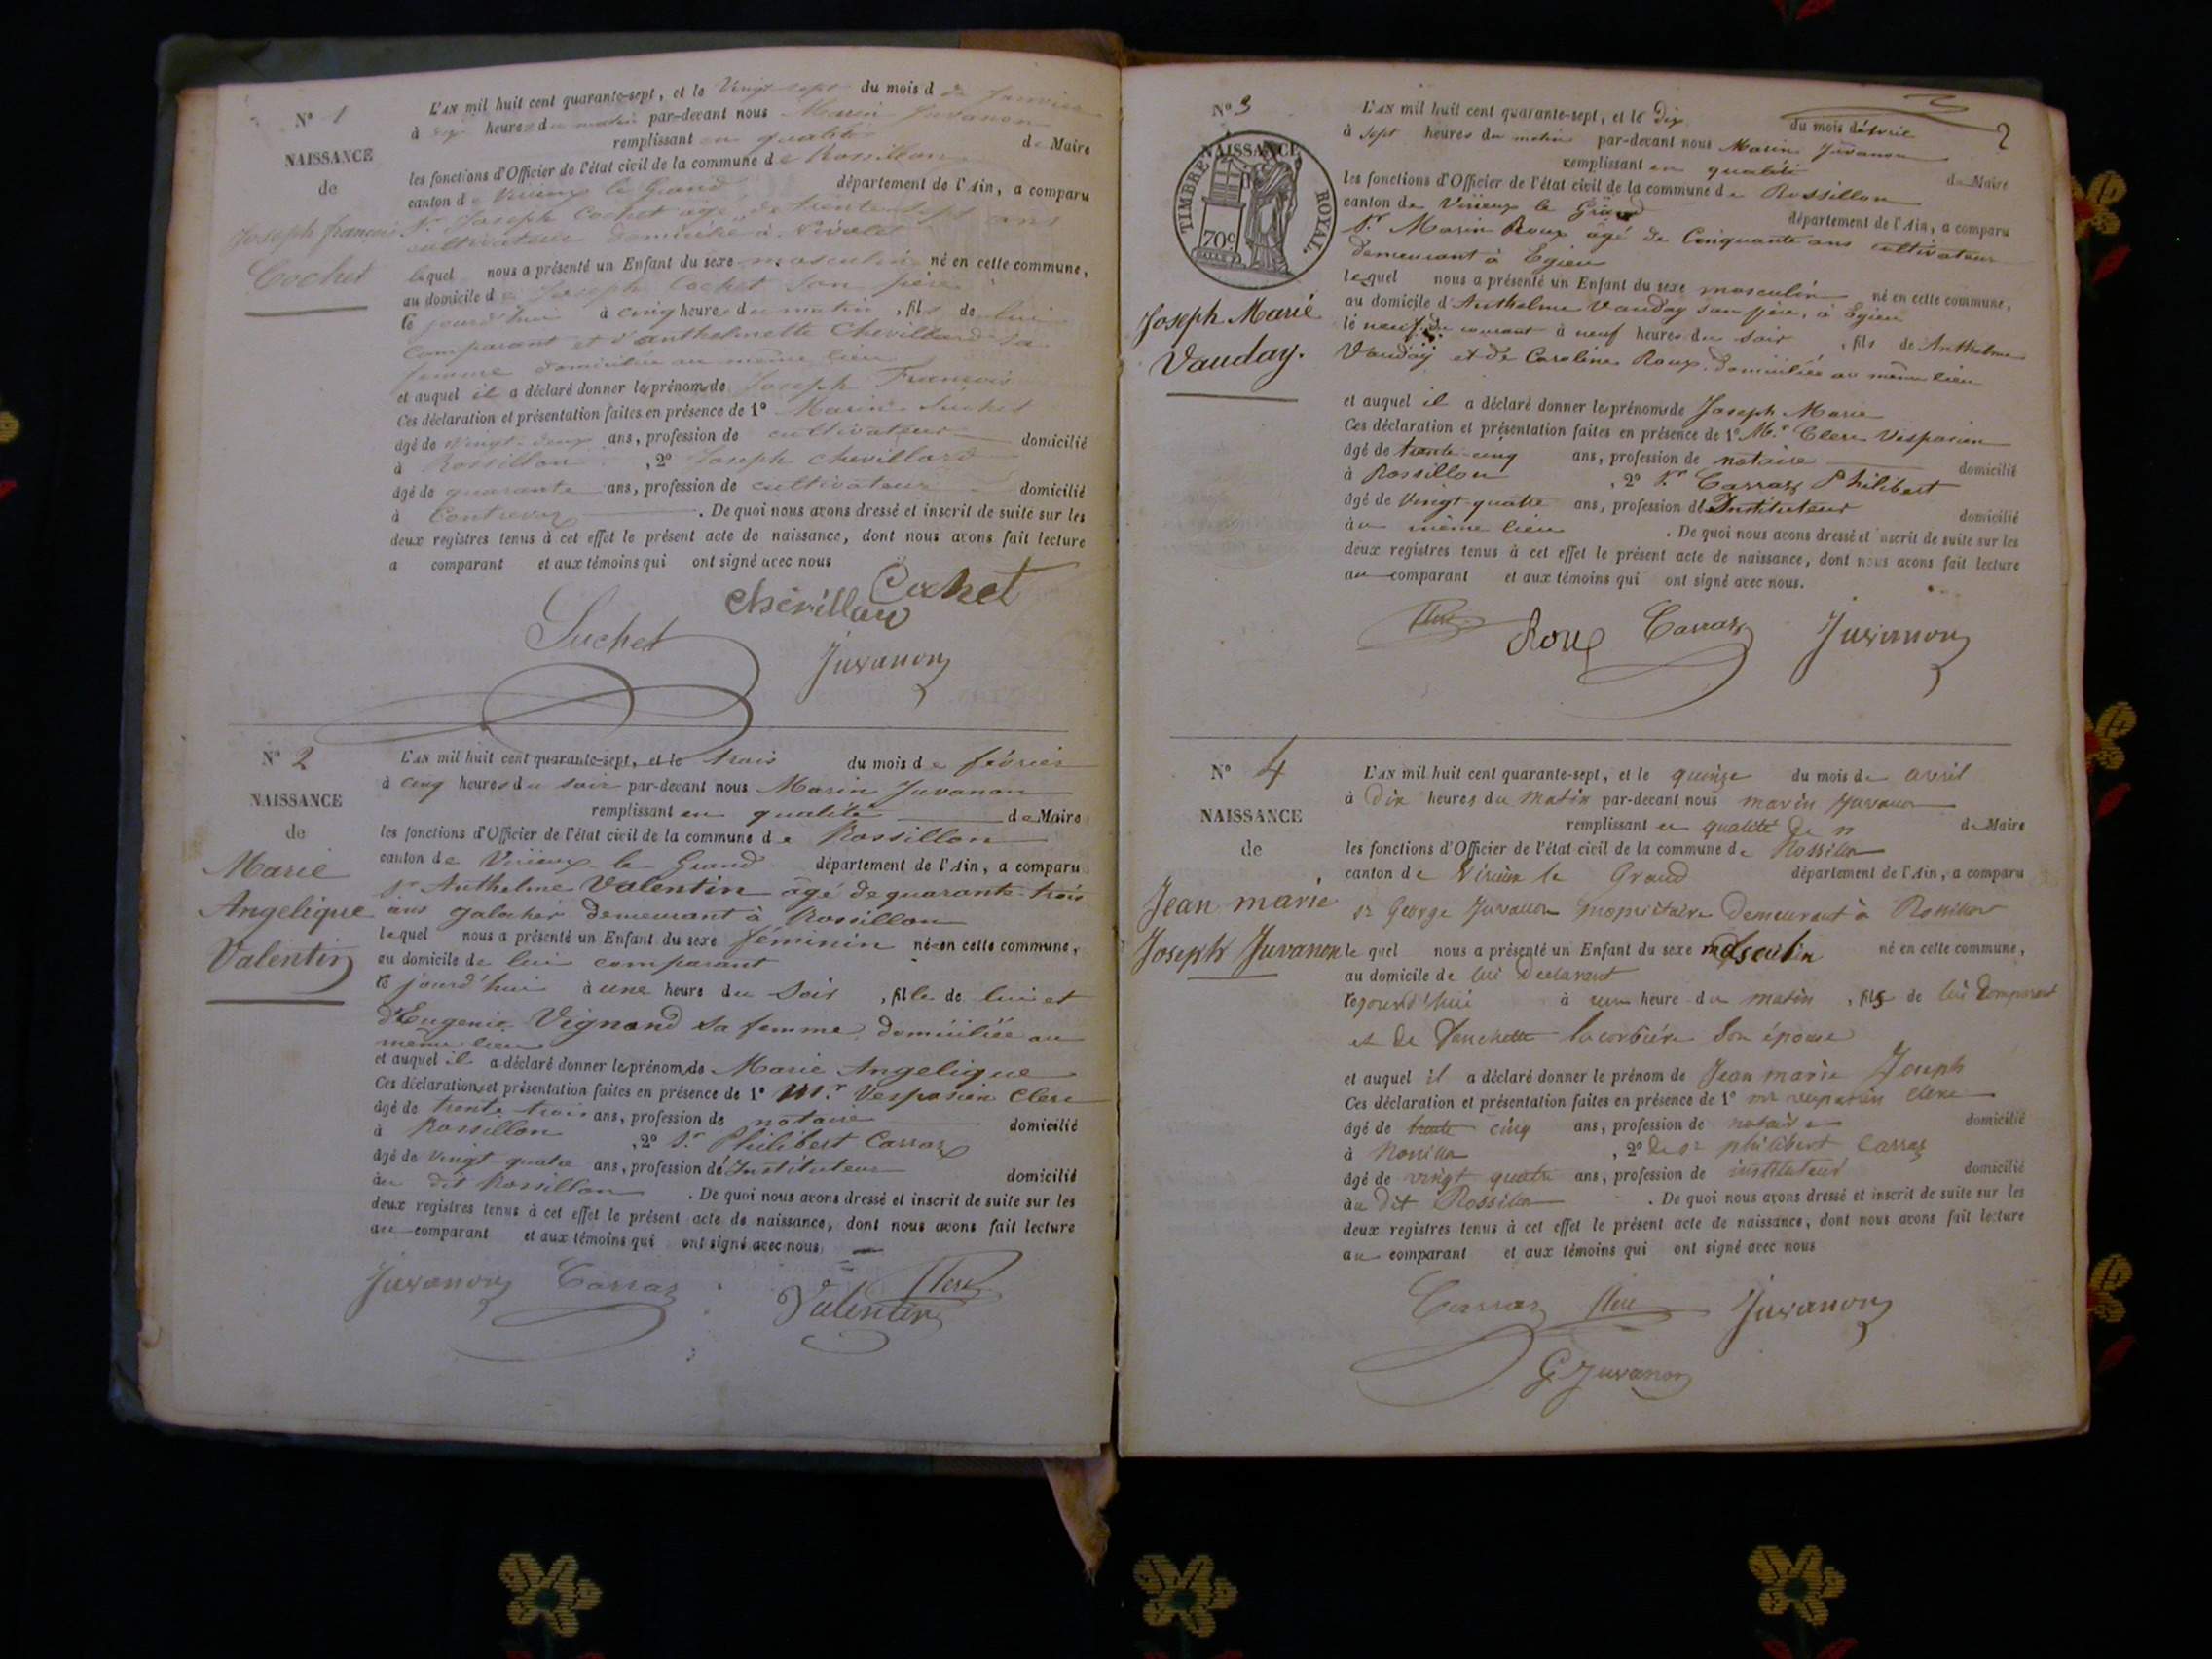 N° 1
NAISSANCE
de
Joseph françois
Cochet
L'AN mil huit cent quarante-sept, et le Vingt-sept du mois d de Janvier
à heures du matin par-devant nous Marin Juvanon
remplissant en qualité de Maire
les fonctions d'Officier de l'état civil de la commune de Rossillon
canton de Virieux le Grand département de l'Ain, a comparu
Sr Joseph Cochet âgé de trente sept ans
cultivateur domicilié à
lequel nous a présenté un Enfant du sexe masculin né en cette commune,
au domicile de Joseph Cochet son père
le jourd'hui à cinq heures du matin, fils de lui
comparant et d'anthelmette Chevillard sa
femme domiciliée au même lieu
et auquel il a déclaré donner les prénoms de Joseph François
Ces déclaration et présentation faites en présence de 1° Marin Suchet
âgé de Vingt-deux ans, profession de cultivateur domicilié
à Rossillon, 2° Joseph Chevillard
âgé de quarante ans, profession de cultivateur domicilié
à Contrevoz. De quoi nous avons dressé et inscrit de suite sur les
deux registres tenus à cet effet le présent acte de naissance, dont nous avons fait lecture
a comparant et aux témoins qui ont signé avec nous
Chevillard Cochet
Suchet Juvanon
N° 2
NAISSANCE
de
Marie
Angelique
Valentin
L'AN mil huit cent quarante-sept, et le trois du mois de février
à cinq heures du soir par-devant nous Marin Juvanon
remplissant en qualité de Maire
les fonctions d'Officier de l'état civil de la commune de Rossillon
canton de Virieux le Grand département de l'Ain, a comparu
Sr Anthelme Valentin âgé de quarante-trois
ans demeurant à Rossillon
lequel nous a présenté un Enfant du sexe féminin né en cette commune,
au domicile de lui comparant
le jourd'hui à une heure du soir, fille de lui et
d'Eugenie Vignand sa femme domiciliée au
même lieu
et auquel il a déclaré donner les prénoms de Marie Angelique
Ces déclarations et présentation faites en présence de 1° Mr. Vespasien Clerc
âgé de trente-trois ans, profession de notaire domicilié
à Rossillon, 2° Sr Philibert Carraz
âgé de vingt-quatre ans, profession d'Instituteur domicilié
au dit Rossillon. De quoi nous avons dressé et inscrit de suite sur les
deux registres tenus à cet effet le présent acte de naissance, dont nous avons fait lecture
au comparant et aux témoins qui ont signé avec nous
Juvanon Carraz Valentin Clerc
2
N° 3
NAISSANCE
TIMBRE ROYAL.
70c
Joseph Marie
Vauday.
L'AN mil huit cent quarante-sept, et le dix du mois d'avril
à sept heures du matin par-devant nous Marin Juvanon
remplissant en qualité de Maire
les fonctions d'Officier de l'état civil de la commune de Rossillon
canton de Virieux le Grand département de l'Ain, a comparu
Sr. Marin Roux âgé de Cinquante ans cultivateur
demeurant à Egieu
lequel nous a présenté un Enfant du sexe masculin né en cette commune,
au domicile d'Anthelme Vauday son père, à Egieu
le neuf du courant à neuf heures du soir, fils de Anthelme
Vauday et de Caroline Roux domiciliée au même lieu
et auquel il a déclaré donner les prénoms de Joseph Marie
Ces déclaration et présentation faites en présence de 1° Mr. Clerc Vespasien
âgé de trente-cinq ans, profession de notaire domicilié
à Rossillon, 2° Sr Carraz Philibert
âgé de Vingt-quatre ans, profession d'Instituteur domicilié
au même lieu. De quoi nous avons dressé et inscrit de suite sur les
deux registres tenus à cet effet le présent acte de naissance, dont nous avons fait lecture
au comparant et aux témoins qui ont signé avec nous.
Clerc Roux Carraz Juvanon
N° 4
NAISSANCE
de
Jean marie
Joseph Juvanon
L'AN mil huit cent quarante-sept, et le quinze du mois de avril
à Dix heures du matin par-devant nous marin Juvanon
remplissant en qualité de Maire
les fonctions d'Officier de l'état civil de la commune de Rossillon
canton de Virieux le Grand département de l'Ain, a comparu
sr George Juvanon propriétaire Demeurant à Rossillon
lequel nous a présenté un Enfant du sexe masculin né en cette commune,
au domicile de lui Declarant
le jourd'hui à une heure du matin, fils de lui Comparant
et de son épouse
et auquel il a déclaré donner le prénom de Jean marie Joseph
Ces déclaration et présentation faites en présence de 1° mr vespasien Clerc
âgé de trente cinq ans, profession de notaire domicilié
à Rossillon, 2° de sr philibert Carraz
âgé de vingt quatre ans, profession de instituteur domicilié
au dit Rossillon. De quoi nous avons dressé et inscrit de suite sur les
deux registres tenus à cet effet le présent acte de naissance, dont nous avons fait lecture
au comparant et aux témoins qui ont signé avec nous
Carraz Clerc Juvanon
G Juvanon